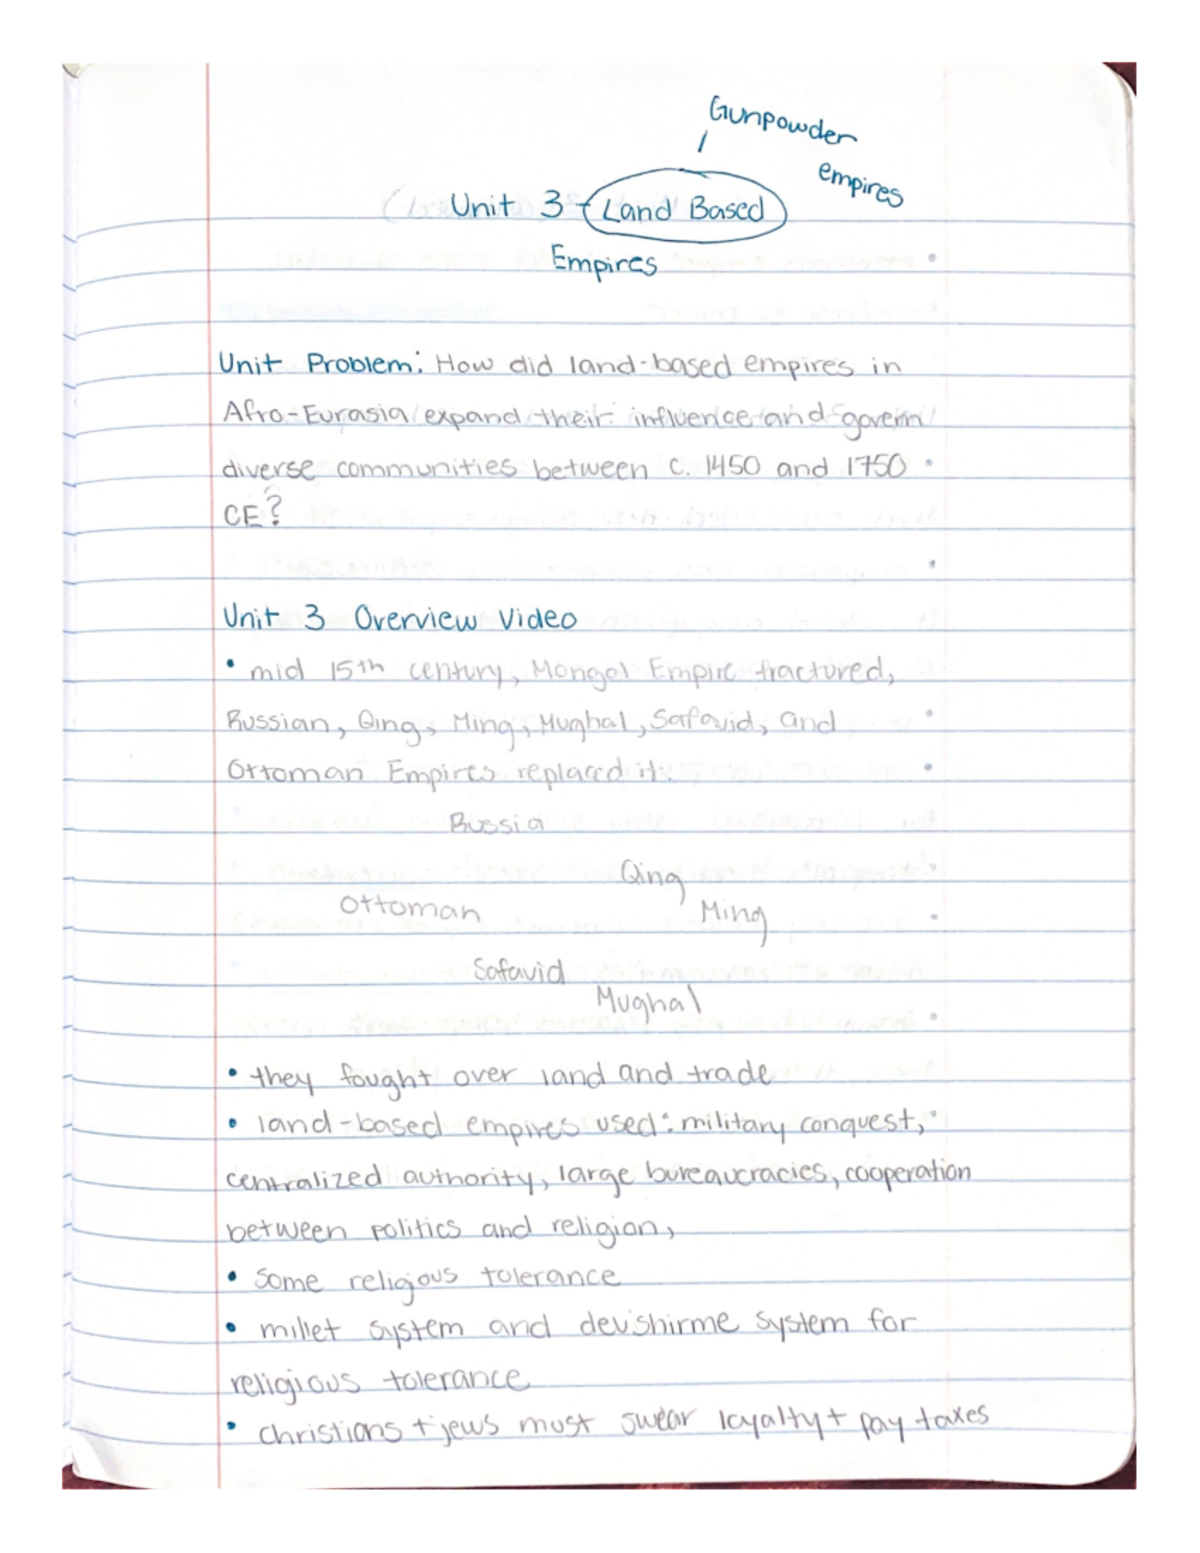 Gunpowder
empires
Unit 3 - Land Based
Empires
Unit Problem: How did land-based empires in
Afro-Eurasia expand their influence and govern
diverse communities between c. 1450 and 1750
CE?
Unit 3 Overview Video
• mid 15th century, Mongol Empire fractured,
Russian, Qing, Ming, Mughal, Safavid, and
Ottoman Empires replaced it.
Russia
Qing
Ottoman
Ming
Safavid
Mughal
• they fought over land and trade
• land-based empires used: military conquest,
centralized authority, large bureaucracies, cooperation
between politics and religion,
• some religious tolerance
• millet system and devishirme system for
religious tolerance
• christians + jews must swear loyalty + pay taxes